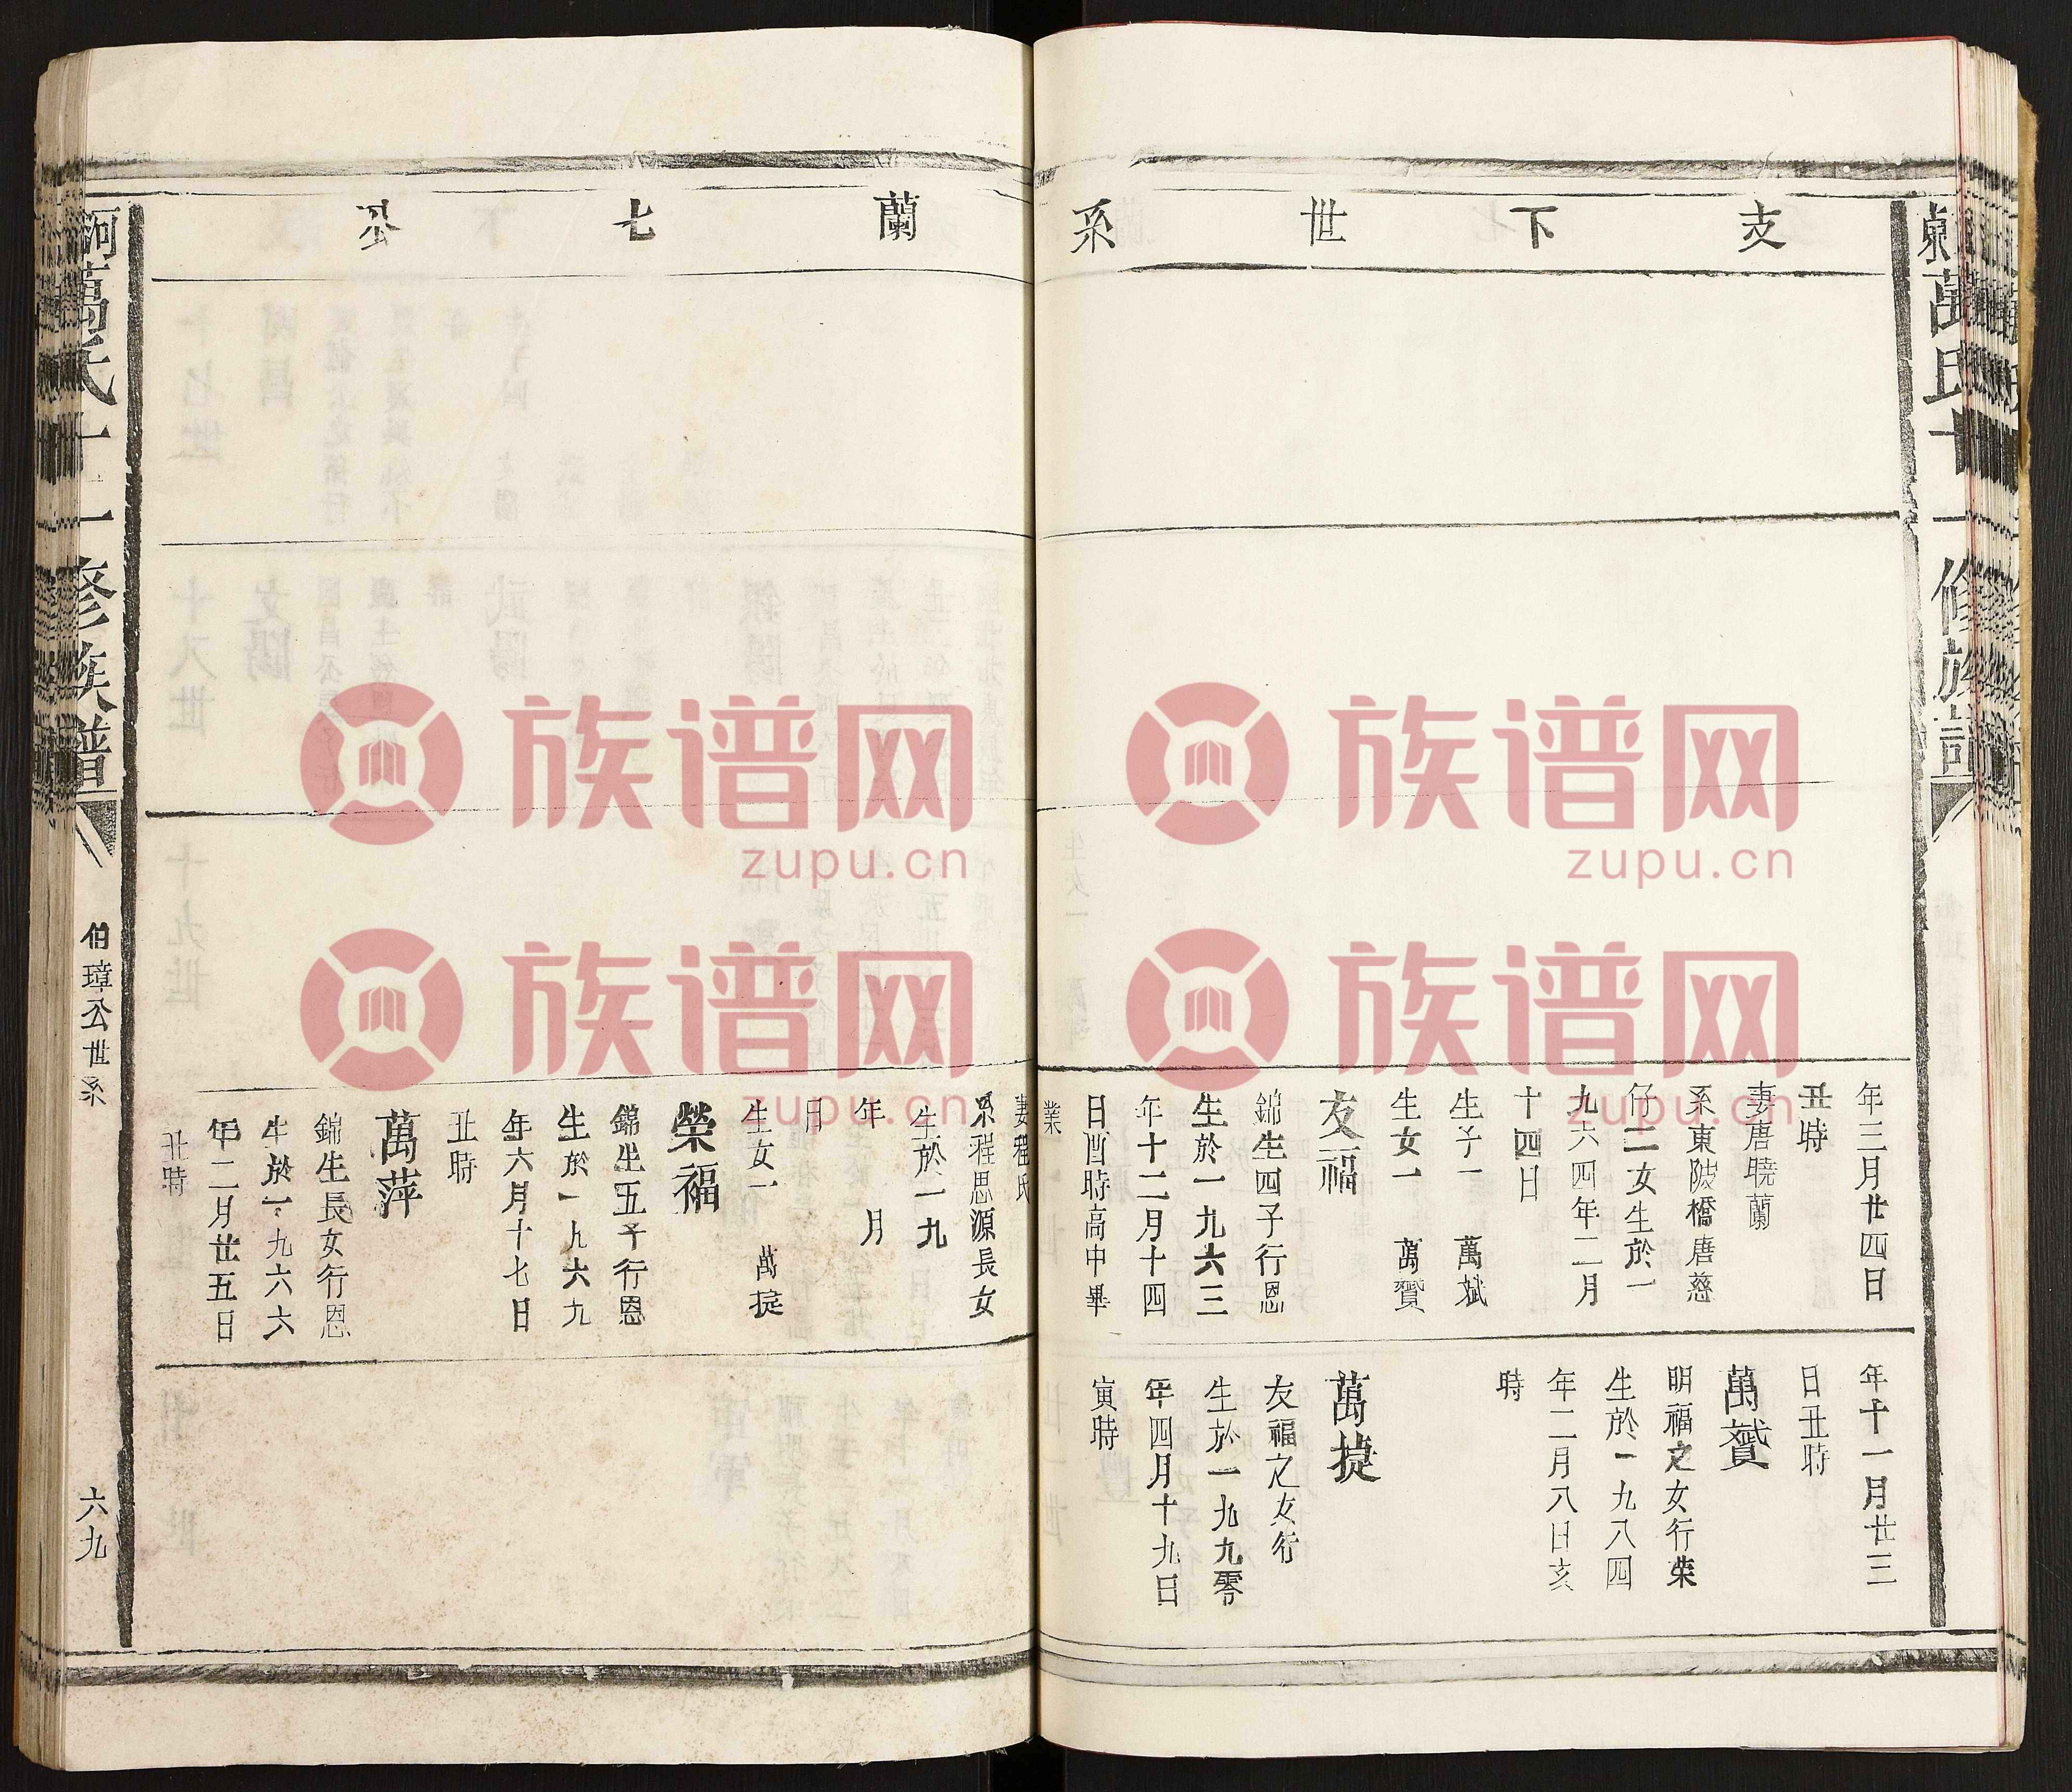 支下世系
年三月廿四日
丑時
妻唐曉蘭
系東陂橋唐慈
仔二女生於一
九六四年二月
十四日
生子一 萬斌
生女一 萬贇
友福
錦生四子行恩
生於一九六三
年十二月十四
日酉時高中畢
業
年十一月廿三
日丑時
萬贇
明福之女行榮
生於一九八四
年二月八日亥
時
萬㨗
友福之女行
生於一九九零
年四月十九日
寅時
蘭七公
妻程氏
系程思源長女
生於一九
年 月
日
生女一 萬㨗
榮福
錦生五子行恩
生於一九六九
年六月十七日
丑時
萬萍
錦生長女行恩
生於一九六六
年二月廿五日
丑時
萬氏十一修族譜
伯璋公世系
六九
萬氏十一修族譜
族谱网
zupu.cn
族谱网
zupu.cn
族谱网
zupu.cn
族谱网
zupu.cn